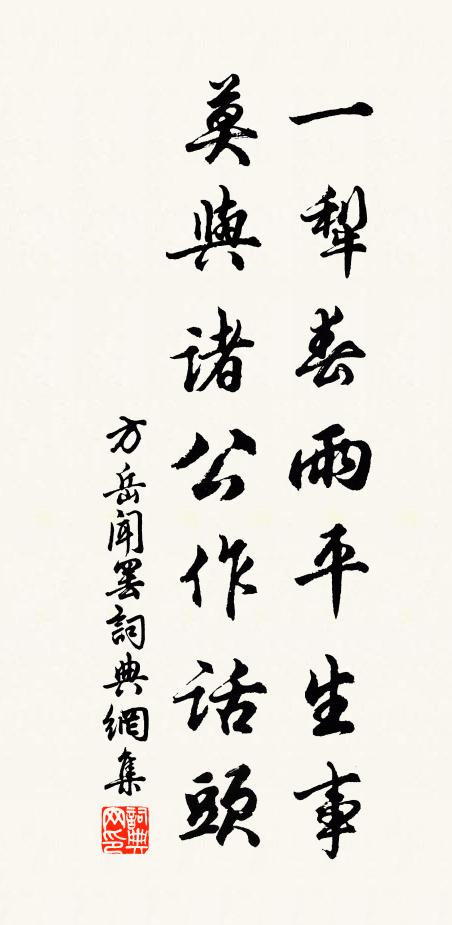 一犂春雨平生事
莫與諸公作話頭
方岳聞罢詞典網集
詞典網印